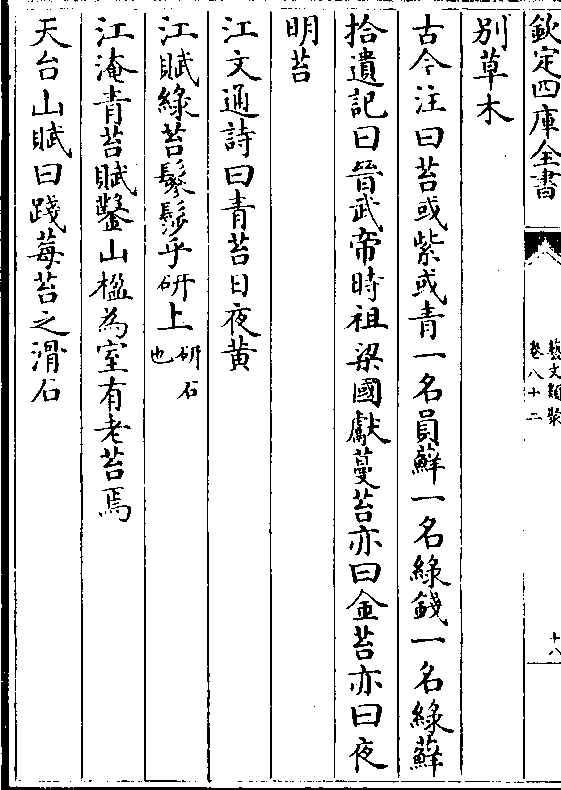 欽定四庫全書
藝文類聚
卷八十二
十八
别草木
古今注曰苔或紫或青一名員蘚一名綠錢一名綠蘚
拾遺記曰晉武帝時祖梁國獻蔓苔亦曰金苔亦曰夜
明苔
江文通詩曰青苔日夜黄
江賦綠苔鬖髿乎硏上硏石也
江淹青苔賦鑿山楹為室有老苔焉
天台山賦曰踐莓苔之滑石